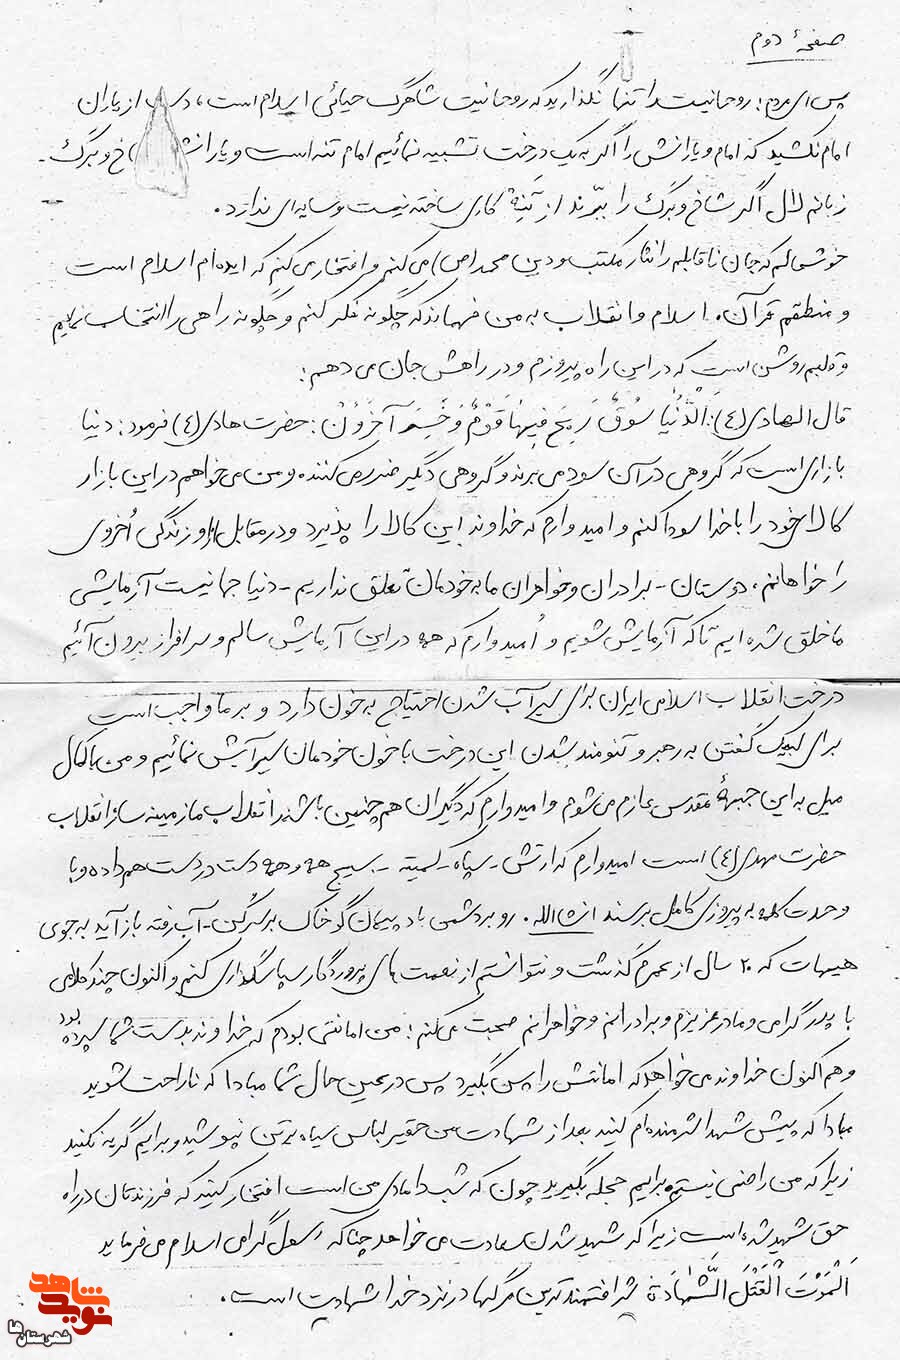 صفحهٔ دوم
پس ای مردم؛ روحانیت را تنها نگذارید که روحانیت شاهرگ حیاتی اسلام است، دست از یاران
امام نکشید که امام و یارانش را اگر به یک درخت تشبیه نمائیم امام تنه است و یارانش شاخ و برگ.
زبانم لال اگر شاخ و برگ را ببّرند از تَنِهٔ کاری ساخته نیست و سایه‌ای ندارد.
خوشحالم که جان ناقابلم را نثار مکتب و دین محمد (ص) می کنم و افتخار می کنم که ایده‌ام اسلام است
و منطقم قرآن. اسلام و انقلاب به من فهماند که چگونه فکر کنم و چگونه راهی را انتخاب نمایم
و قلبم روشن است که در این راه پیروزم و در راهش جان می دهم:
قال الهادی (ع): اَلدُّنْیا سُوقٌ رَبِحَ فیها قَوْمٌ وَ خَسِرَ آخَرُونْ: حضرت هادی (ع) فرمود: دنیا
بازاری است که گروهی در آن سود می برند و گروهی دیگر ضرر می کنند. و من می خواهم در این بازار
کالای خود را با خدا سودا کنم و امیدوارم که خداوند این کالا را پذیرد و در مقابل از او زندگی اُخروی
را خواهانم، دوستان - برادران و خواهران ما به خودمان تعلق نداریم - دنیا جهانیست آزمایشی
ما خلق شده ایم تا که آزمایش شویم و اُمیدوارم که همه در این آزمایش سالم و سرافراز بیرون آئیم
درخت انقلاب اسلامی ایران برای سیرآب شدن احتیاج به خون دارد و بر ما واجب است
برای لبیک گفتن به رهبر و تنومند شدن این درخت با خون خودمان سیرآبش نمائیم و من با کمال
میل به این جبههٔ مقدس عازم می شوم و امیدوارم که دیگران هم چنین باشند انقلاب ما زمینه ساز انقلاب
حضرت مهدی (ع) است امیدوارم که ارتش - سپاه - کمیته - بسیج همه و همه دست در دست هم داده و با
وحدت کلمه به پیروزی کامل برسند انشاالله. رو بر دشمن باد پیمان گو خاک بر سر کن - آب رفته باز آید به جوی
هیهات که ۲۰ سال از عمرم گذشت و نتوانستم از نعمت های پروردگار سپاسگذاری کنم و اکنون چند کلامی
با پدر گرامی و مادر عزیزم و برادرانم و خواهرانم صحبت می کنم؛ من امانتی بودم که خداوند بدست شما سپرده بود
و هم اکنون خداوند می خواهد که امانتش را پس بگیرد پس در عین حال شما مبادا که ناراحت شوید
مبادا که پیش شهدا شرمنده‌ام کنید بعد از شهادت من حقیر لباس سیاه بر تن نپوشید و برایم گریه نکنید
زیرا که من راضی نیستم برایم حجله بگیرید چون که شب دامادی من است افتخار کنید که فرزندتان در راه
حق شهید شده است زیرا که شهید شدن سعادت می خواهد چنانکه رسول گرامی اسلام می فرماید
اَلْمَوْتَ اْلقَتْلَ الَّشهادَة شرافتمندترین مرگها در نزد خدا شهادت است.
نوید شاهد
شهرستان‌ها